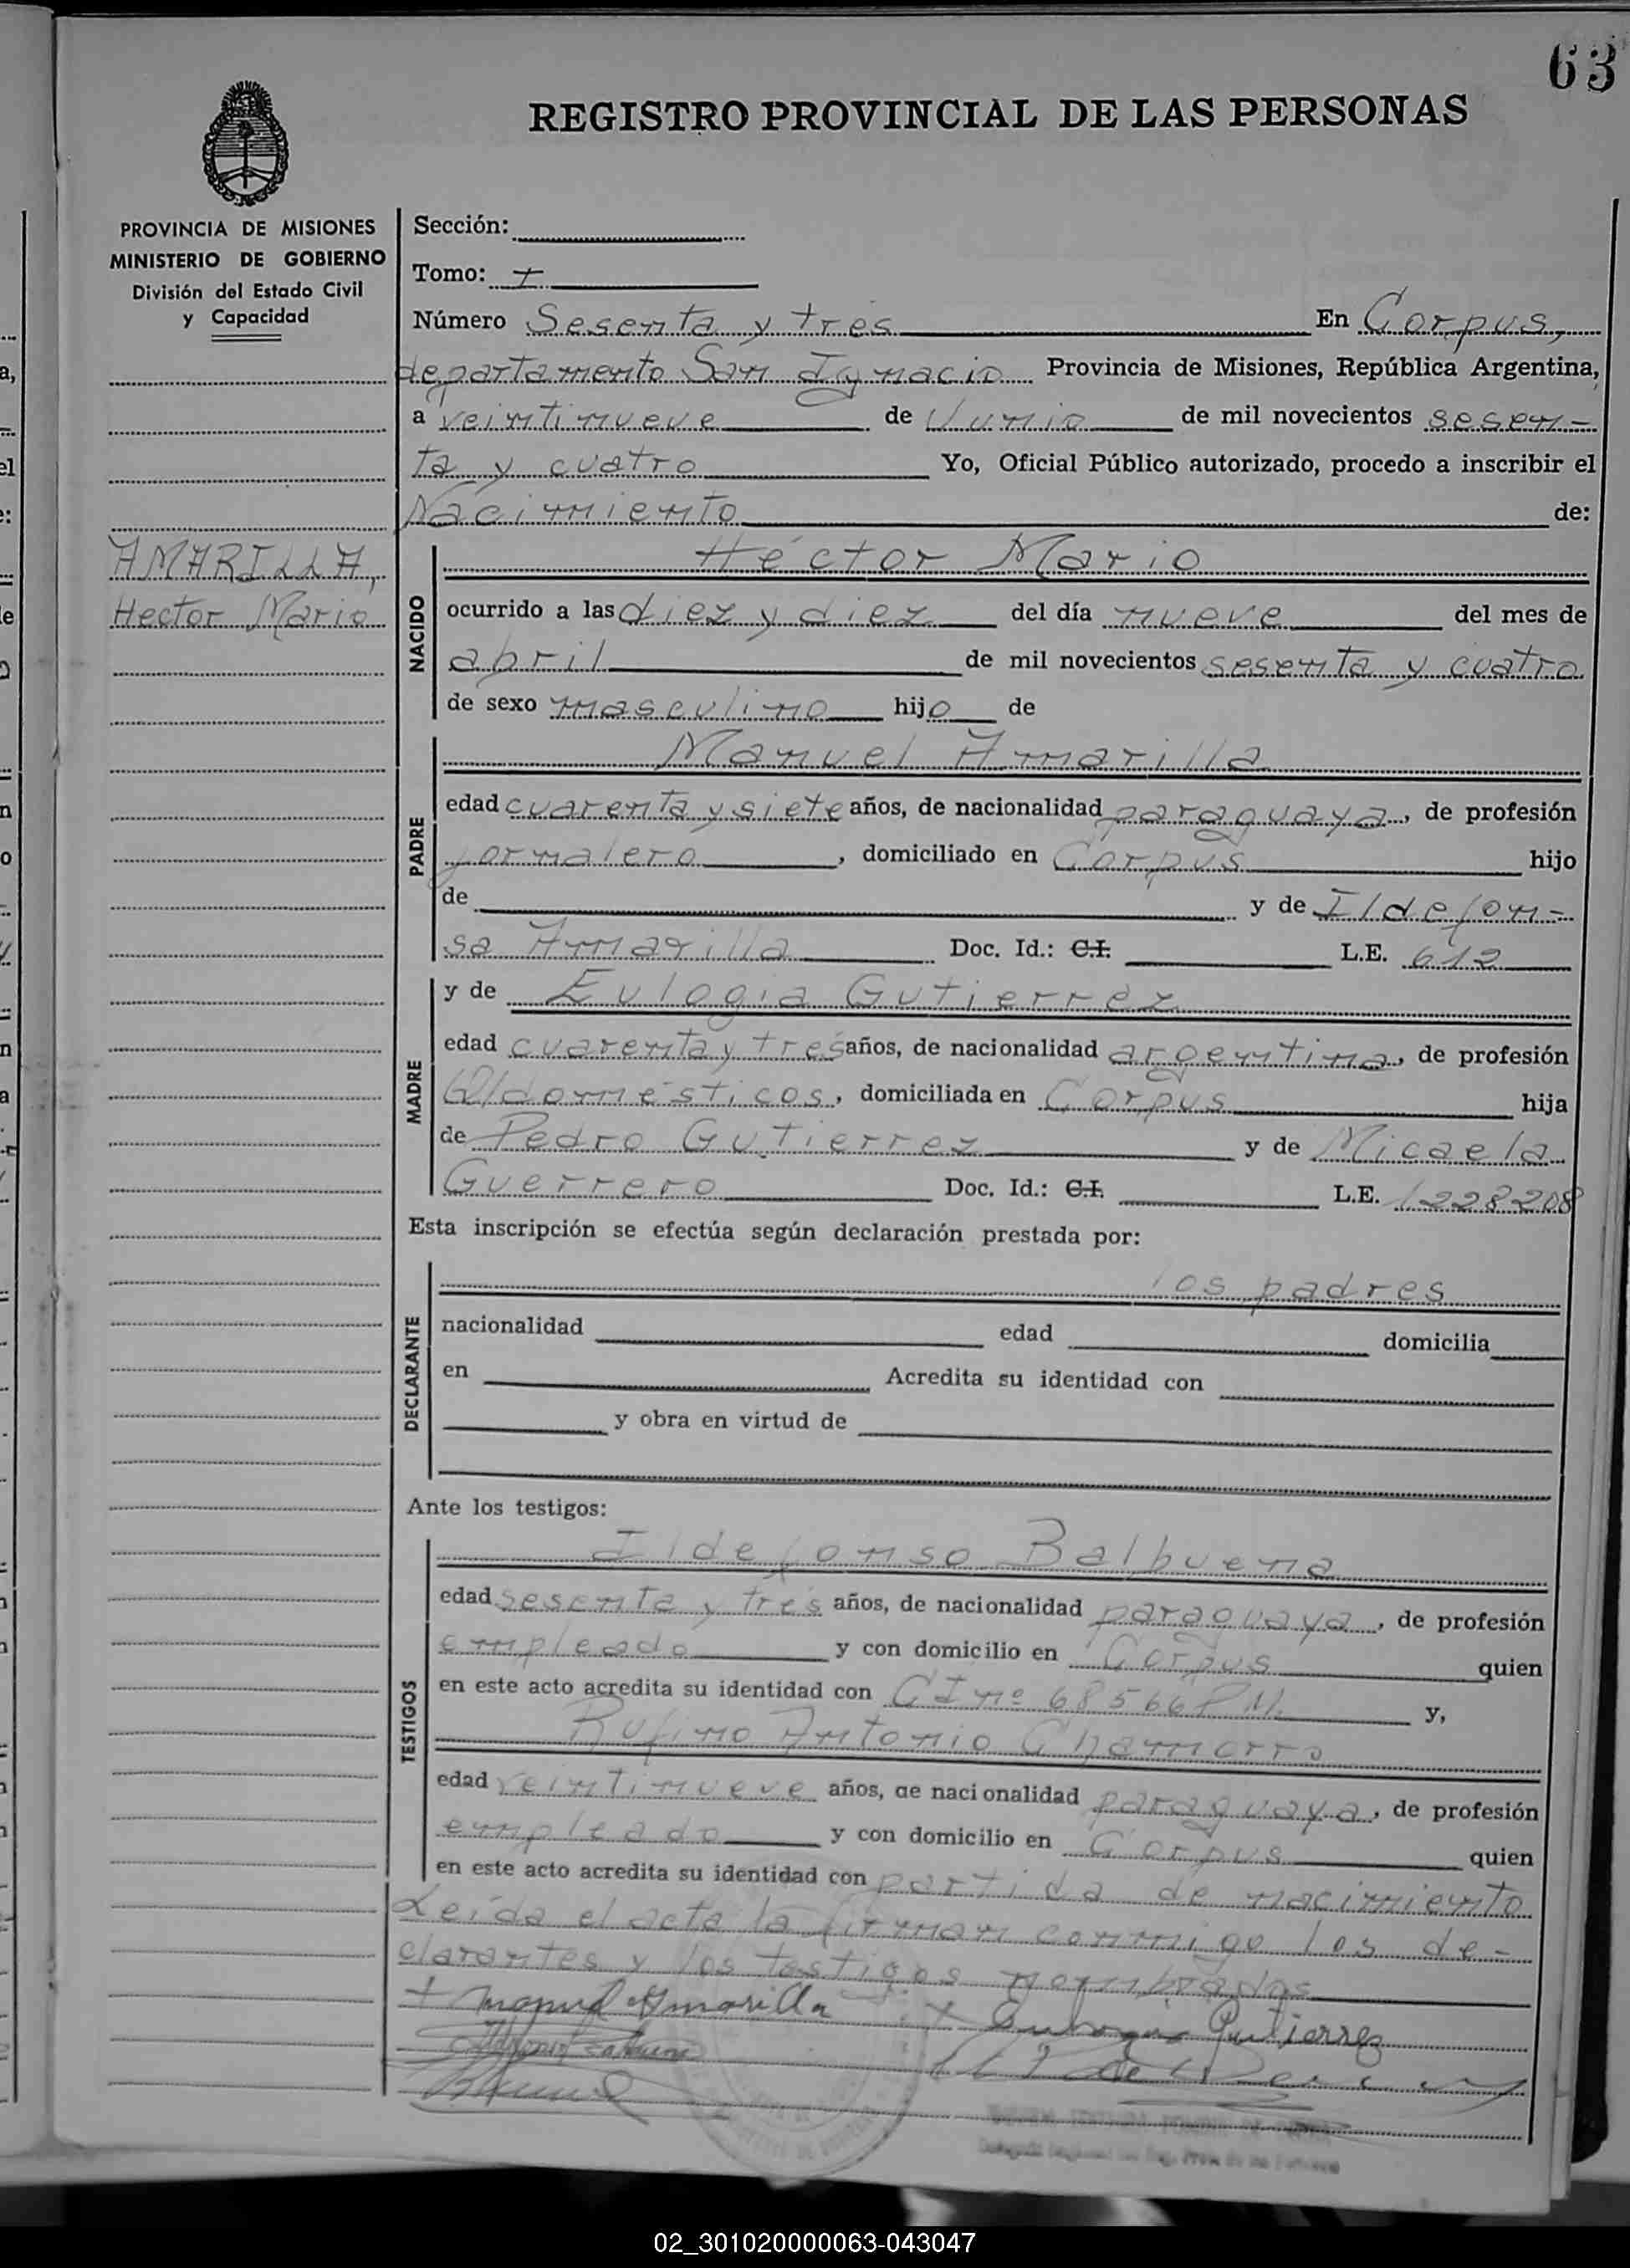 63
REGISTRO PROVINCIAL DE LAS PERSONAS
PROVINCIA DE MISIONES
MINISTERIO DE GOBIERNO
División del Estado Civil
y Capacidad
AMARILLA,
Hector Mario
Sección:
Tomo:
Número Sesenta y tres En Corpus,
departamento San Ignacio Provincia de Misiones, República Argentina,
a veintinueve de Junio de mil novecientos sesen-
ta y cuatro Yo, Oficial Público autorizado, procedo a inscribir el
Nacimiento de:
NACIDO
Héctor Mario
ocurrido a las diez y diez del día nueve del mes de
abril de mil novecientos sesenta y cuatro
de sexo masculino hijo de
PADRE
Manuel Amarilla
edad cuarenta y siete años, de nacionalidad paraguaya, de profesión
jornalero, domiciliado en Corpus hijo
de y de Ildefon-
sa Amarilla Doc. Id.: C.I. L.E. 612
MADRE
y de Eulogia Gutierrez
edad cuarenta y tres años, de nacionalidad argentina, de profesión
Q/domésticos, domiciliada en Corpus hija
de Pedro Gutierrez y de Micaela
Guerrero Doc. Id.: C.I. L.E. 1228208
Esta inscripción se efectúa según declaración prestada por:
DECLARANTE
los padres
nacionalidad edad domicilia
en Acredita su identidad con
y obra en virtud de
Ante los testigos:
TESTIGOS
Ildefonso Balbuena
edad sesenta y tres años, de nacionalidad paraguaya, de profesión
empleado y con domicilio en Corpus quien
en este acto acredita su identidad con CI nº 68566 P.M. y,
Rufino Antonio Chamorro
edad veintinueve años, de nacionalidad paraguaya, de profesión
empleado y con domicilio en Corpus quien
en este acto acredita su identidad con partida de nacimiento
Leída el acta la firman conmigo los de-
clarantes y los testigos nombrados
+ Manuel Amarilla x Gutierrez
02_301020000063-043047